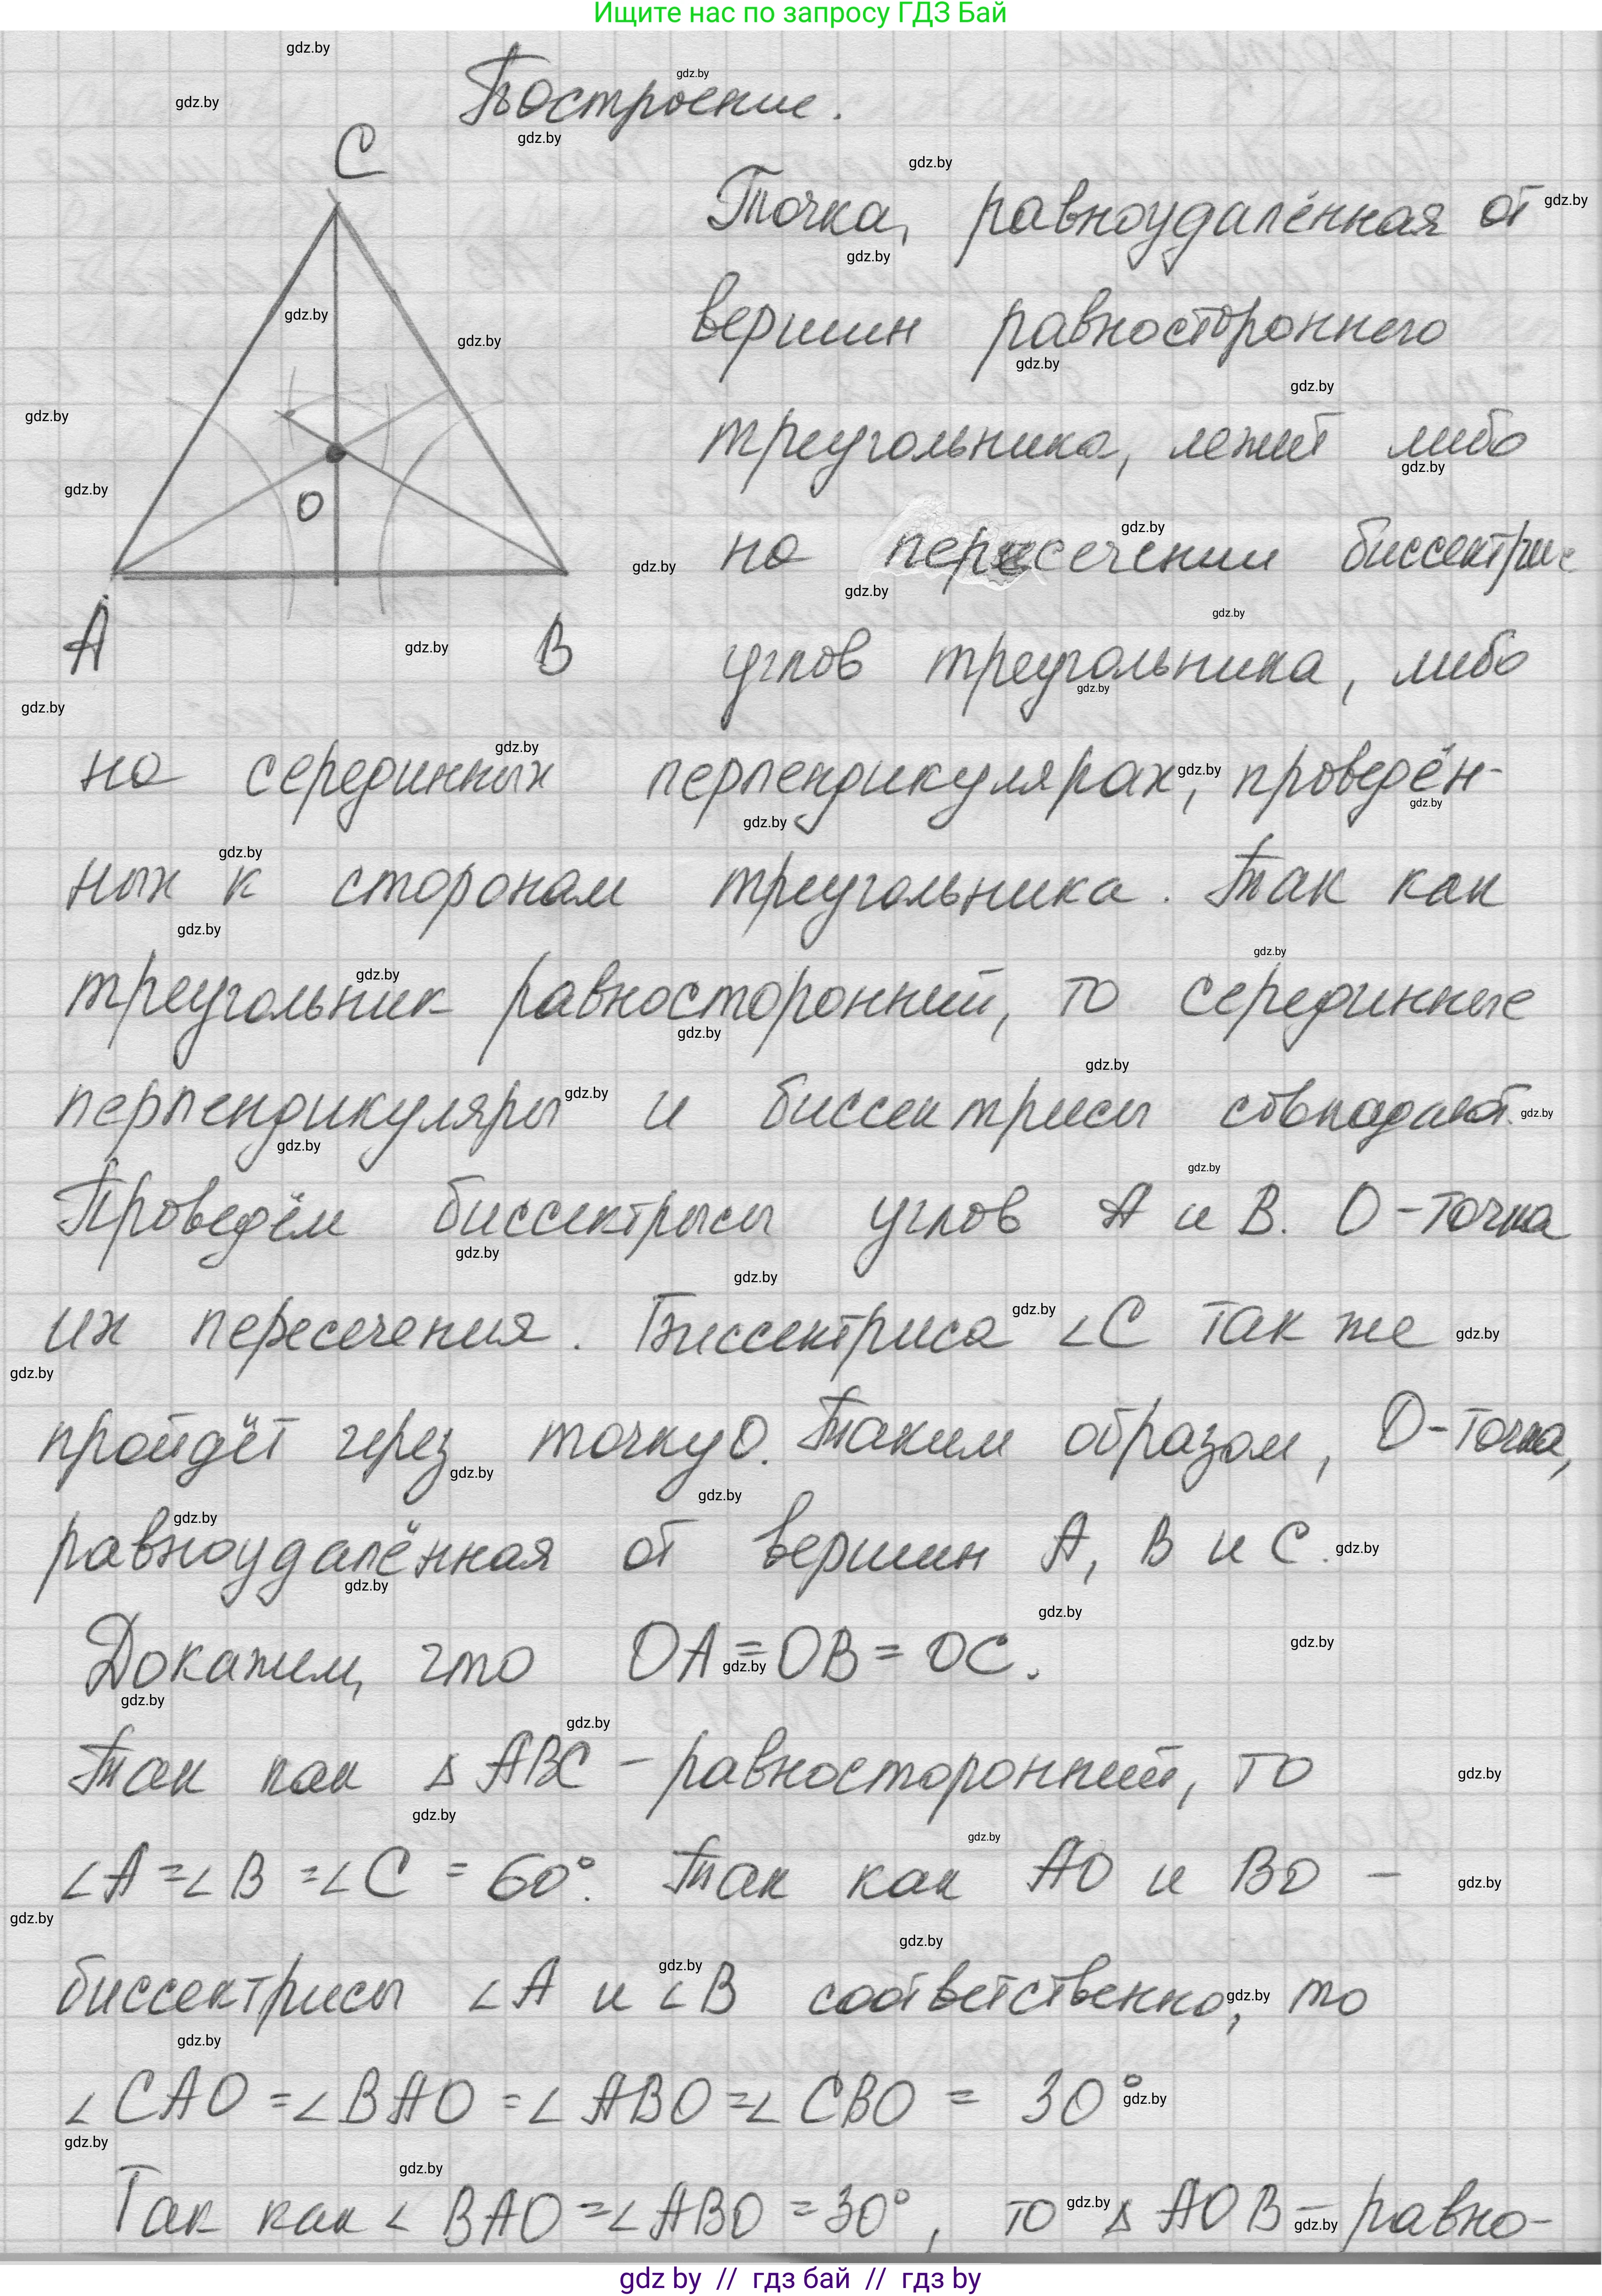 Ищите нас по запросу ГДЗ Бай
Построение.
C
Точка, равноудалённая от
вершин равностороннего
треугольника, лежит либо
на пересечении биссектрис
O
A
B
углов треугольника, либо
на серединных перпендикулярах, проведён-
ных к сторонам треугольника. Так как
треугольник равносторонний, то серединные
перпендикуляры и биссектрисы совпадают.
Проведём биссектрисы углов A и B. O - точка
их пересечения. Биссектриса ∠C так же
пройдёт через точку O. Таким образом, O - точка,
равноудалённая от вершин A, B и C.
Докажем, что OA = OB = OC.
Так как △ ABC - равносторонний, то
∠A = ∠B = ∠C = 60°. Так как AO и BO -
биссектрисы ∠A и ∠B соответственно, то
∠CAO = ∠BAO = ∠ABO = ∠CBO = 30°
Так как ∠BAO = ∠ABO = 30°, то △ AOB - равно-
gdz by // гдз бай // гдз by